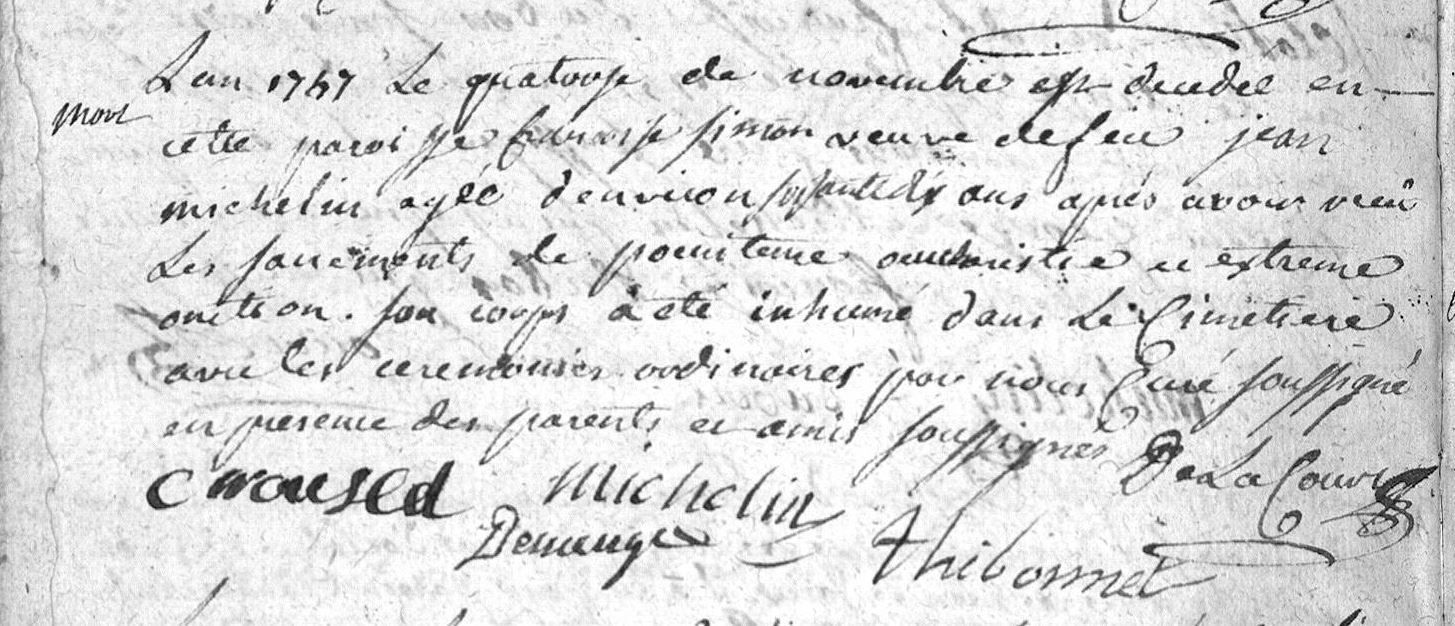 Lan 1747 Le quatorse de novembre est decedee en
mort
cette paroisse francoise simon veuve de feu jean
michelin agée denviron soisantedix ans apres avoir recu
Les sacrements de penitence eucharistie et extreme
onction. son corps à eté inhumé dans Le Cimetiere
avec les ceremonies ordinaires par nous Curé soussigné
en presence des parents et amis soussignés De La Cour
Michelin
Demange
thibonnet